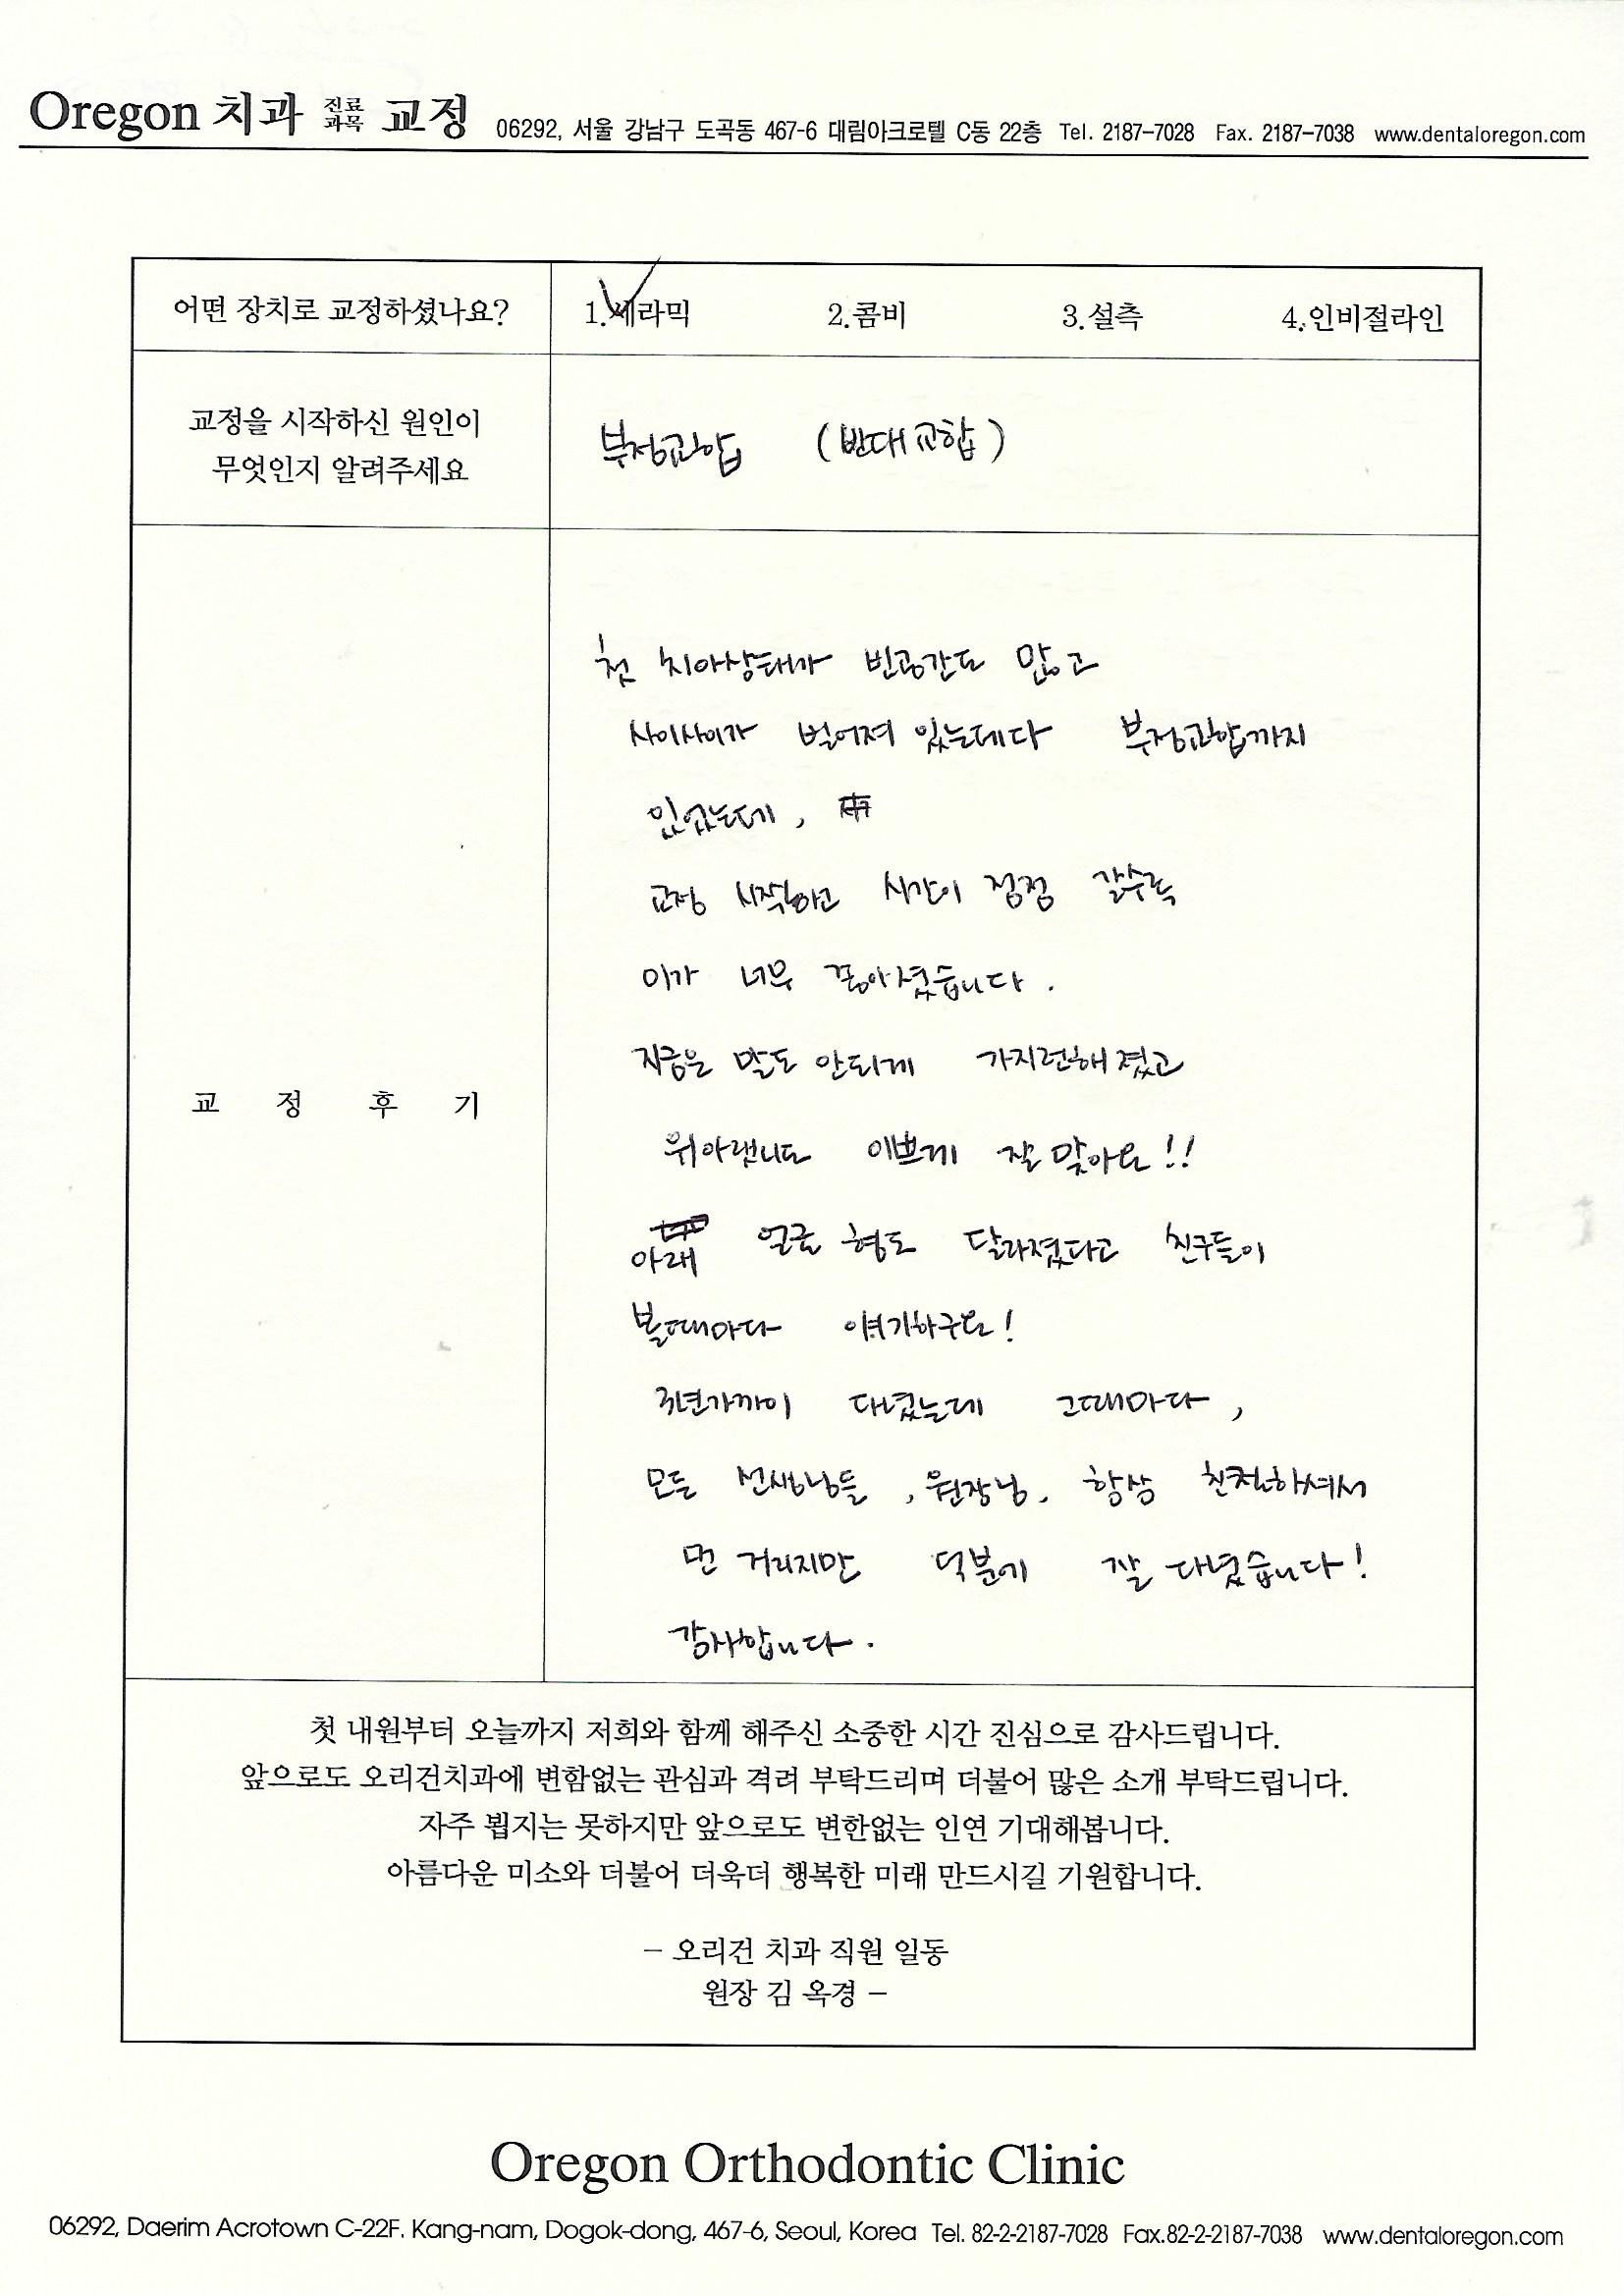 Oregon 치과 진료과목 교정 06292, 서울 강남구 도곡동 467-6 대림아크로텔 C동 22층 Tel. 2187-7028 Fax. 2187-7038 www.dentaloregon.com
어떤 장치로 교정하셨나요? 1.세라믹 2.콤비 3.설측 4.인비절라인
교정을 시작하신 원인이
무엇인지 알려주세요
부정교합 (반대교합)
교 정 후 기
첫 치아상태가 빈공간도 많고
사이사이가 벌어져 있는데다 부정교합까지
있었는데,
교정 시작하고 시간이 점점 갈수록
이가 너무 좋아졌습니다.
지금은 말도 안되게 가지런해졌고
위아랫니도 이쁘게 잘 맞아요!!
아래 얼굴 형도 달라졌다고 친구들이
볼때마다 얘기하구요!
3년가까이 다녔는데 그때마다,
모든 선생님들, 원장님, 항상 친절하셔서
먼 거리지만 덕분에 잘 다녔습니다!
감사합니다.
첫 내원부터 오늘까지 저희와 함께 해주신 소중한 시간 진심으로 감사드립니다.
앞으로도 오리건치과에 변함없는 관심과 격려 부탁드리며 더불어 많은 소개 부탁드립니다.
자주 뵙지는 못하지만 앞으로도 변한없는 인연 기대해봅니다.
아름다운 미소와 더불어 더욱더 행복한 미래 만드시길 기원합니다.
– 오리건 치과 직원 일동
원장 김 옥경 –
Oregon Orthodontic Clinic
06292, Daerim Acrotown C-22F. Kang-nam, Dogok-dong, 467-6, Seoul, Korea Tel. 82-2-2187-7028 Fax.82-2-2187-7038 www.dentaloregon.com